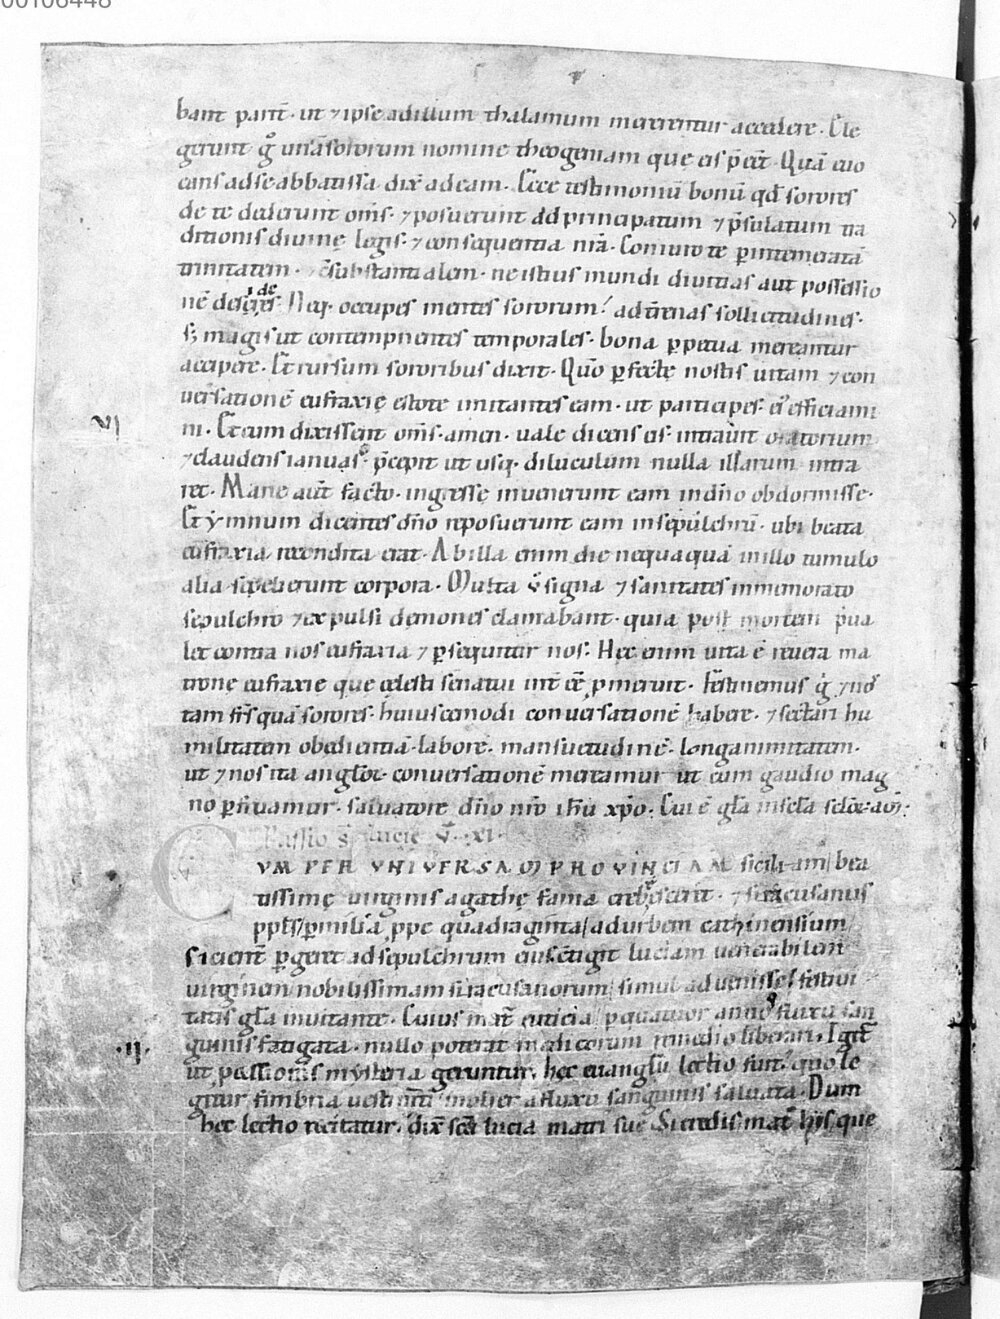 00106448
bant parit̄ · ut ⁊ ipse ad illum thalamum mererentur accedere · Ele
gerunt g̊ una soro̅rum nomine theogeniam que eis p̄eēt · Quā euo
cans ad se abbatissa · dix̄ ad eam · Ecce testimoniū bonū qđ sorores
de te dederunt om̄s · ⁊ posuerunt ad principatum ⁊ p̄sulatum tra
ditionis diuinę legis · ⁊ consequentia nr̄a · Coniuro te per intemeratā
trinitatem · ⁊ c̄substantialem · ne istius mundi diuitias aut possessio
nē desideres · Neq; occupes mentes sororum ad t̄renas sollicitudines ·
s; magis ut contempnentes temporales · bona ꝑpetua mereantur
accipere · Et rursum sororibus dixit · Quō ꝑfectę nostis uitam ⁊ con
uersationē eufraxię estote imitantes eam · ut participes ei᾽ efficiami
VI
ni · Et cum dixissent om̄s · amen · uale dicens eis · intrauit oratorium
⁊ claudens ianuas · p̄cepit ut usq; diluculum nulla illarum intra
ret · Mane aut̄ facto · ingressę inuenerunt eam in dn̄o obdormisse ·
Et ymnum dicentes dn̄o reposuerunt eam in sepulchrū · ubi beata
eufraxia recondita erat · Ab illa enim die nequaquā in illo tumulo
alia sepelierunt corpora · Multa ů signa ⁊ sanitates in memorato
sepulchro ⁊ expulsi dęmones clamabant · quia post mortem p̄ua
let contra nos eufraxia ⁊ ꝑsequitur nos · Hęc enim uita ē reuera ma
tronę eufraxie que cęlesti senatui int̄ eē p̄meruit · Festinemus g̊ ⁊ nos
tam fr̄s quā sorores · huiuscemodi conuersationē habere · ⁊ sectari hu
militatem obedientiā · labore · mansuetudinē · longanimitatem ·
ut ⁊ nos ita angłoꝝ · conuersationē mereamur ut cum gaudio mag
no ꝑfruamur · saluatore dn̄o nr̄o ihū xp̄o · Cui ē gła in scła scłoꝝ · am̄ ·
Passio s̄ lucie ṽ · xi ·
CVM PER VNIVERSAM PROVINCIAM siciliam bea
tissimę uirginis agathę fama crebresceret · ⁊ siracusanus
pp̄ls ꝑ milia ꝓpe quadraginta ad urbem cathinensium
sicient̄ ꝑgeret ad sepulchrum eius c̄tigit luciam uenerabilem
uirginem nobilissimam siracusanorum simul aduenisse festiui
tatis gła inuitante · Cuius mat̄ euticia ꝑ quatuor annos fluxu san
· II ·
guinis fatigata · nullo poterat medicorum remedio liberari · Igit̄
ut passionis mysteria geruntur, hęc euangłii lectio fuit · quo le
gitur fimbria uestimti mulier a fluxu sanguinis saluata · Dum
hęc lectio recitatur · dix̄ sc̄a lucia matri suę Si credis mat̄ hys que